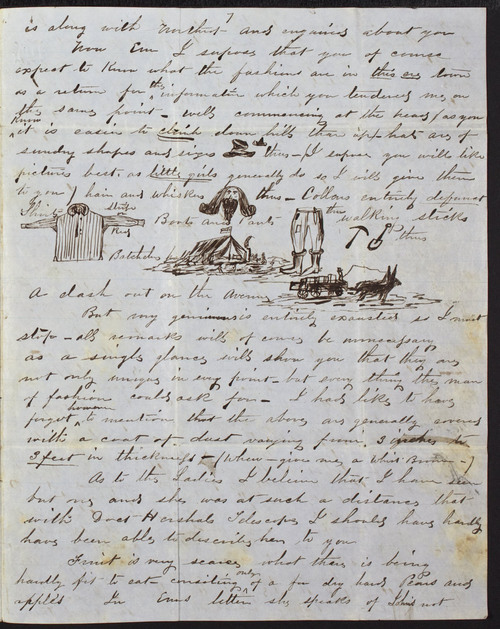 7
is along with Mother and enquires about you
Now Em I supose that you of corse
expect to Know what the fashions are in this ere town
as a return for the information which you tendered me on
the same point - well commencing at the head (as you
Know it is easier to climb down hill than up) hat are of
sundry shapes and sizes thus - I supose you will like
pictures best, as little girls generally do so I will give them
to you / hair and whiskers thus - Collars entirely defunct
Shirt stripe Red Boots and Pants thus walking sticks thus
Batchelor
A dash out on the Avenue
But my genius is entirely exausted so I must
stop - all remarks will of corse be unnecessary
as a single glance will show you that they are
not only unique in every point - but every thing the man
of fashion could ask for - I had like to have
forgot however to mention that the above are generally covered
with a coat of dust varying from 3 inches to
3 feet in thickness - (Whew - give me a Whisk Broom -)
As to the Ladies I believe that I have seen
but one and she was at such a distance that
with Doct Hershels Telescope I should have hardly
have been able to describe her to you
Fruit is very scarce what there is being
hardly fit to eat consisting only of a few dry hard Pears and
apples In Ems letter she speaks of not